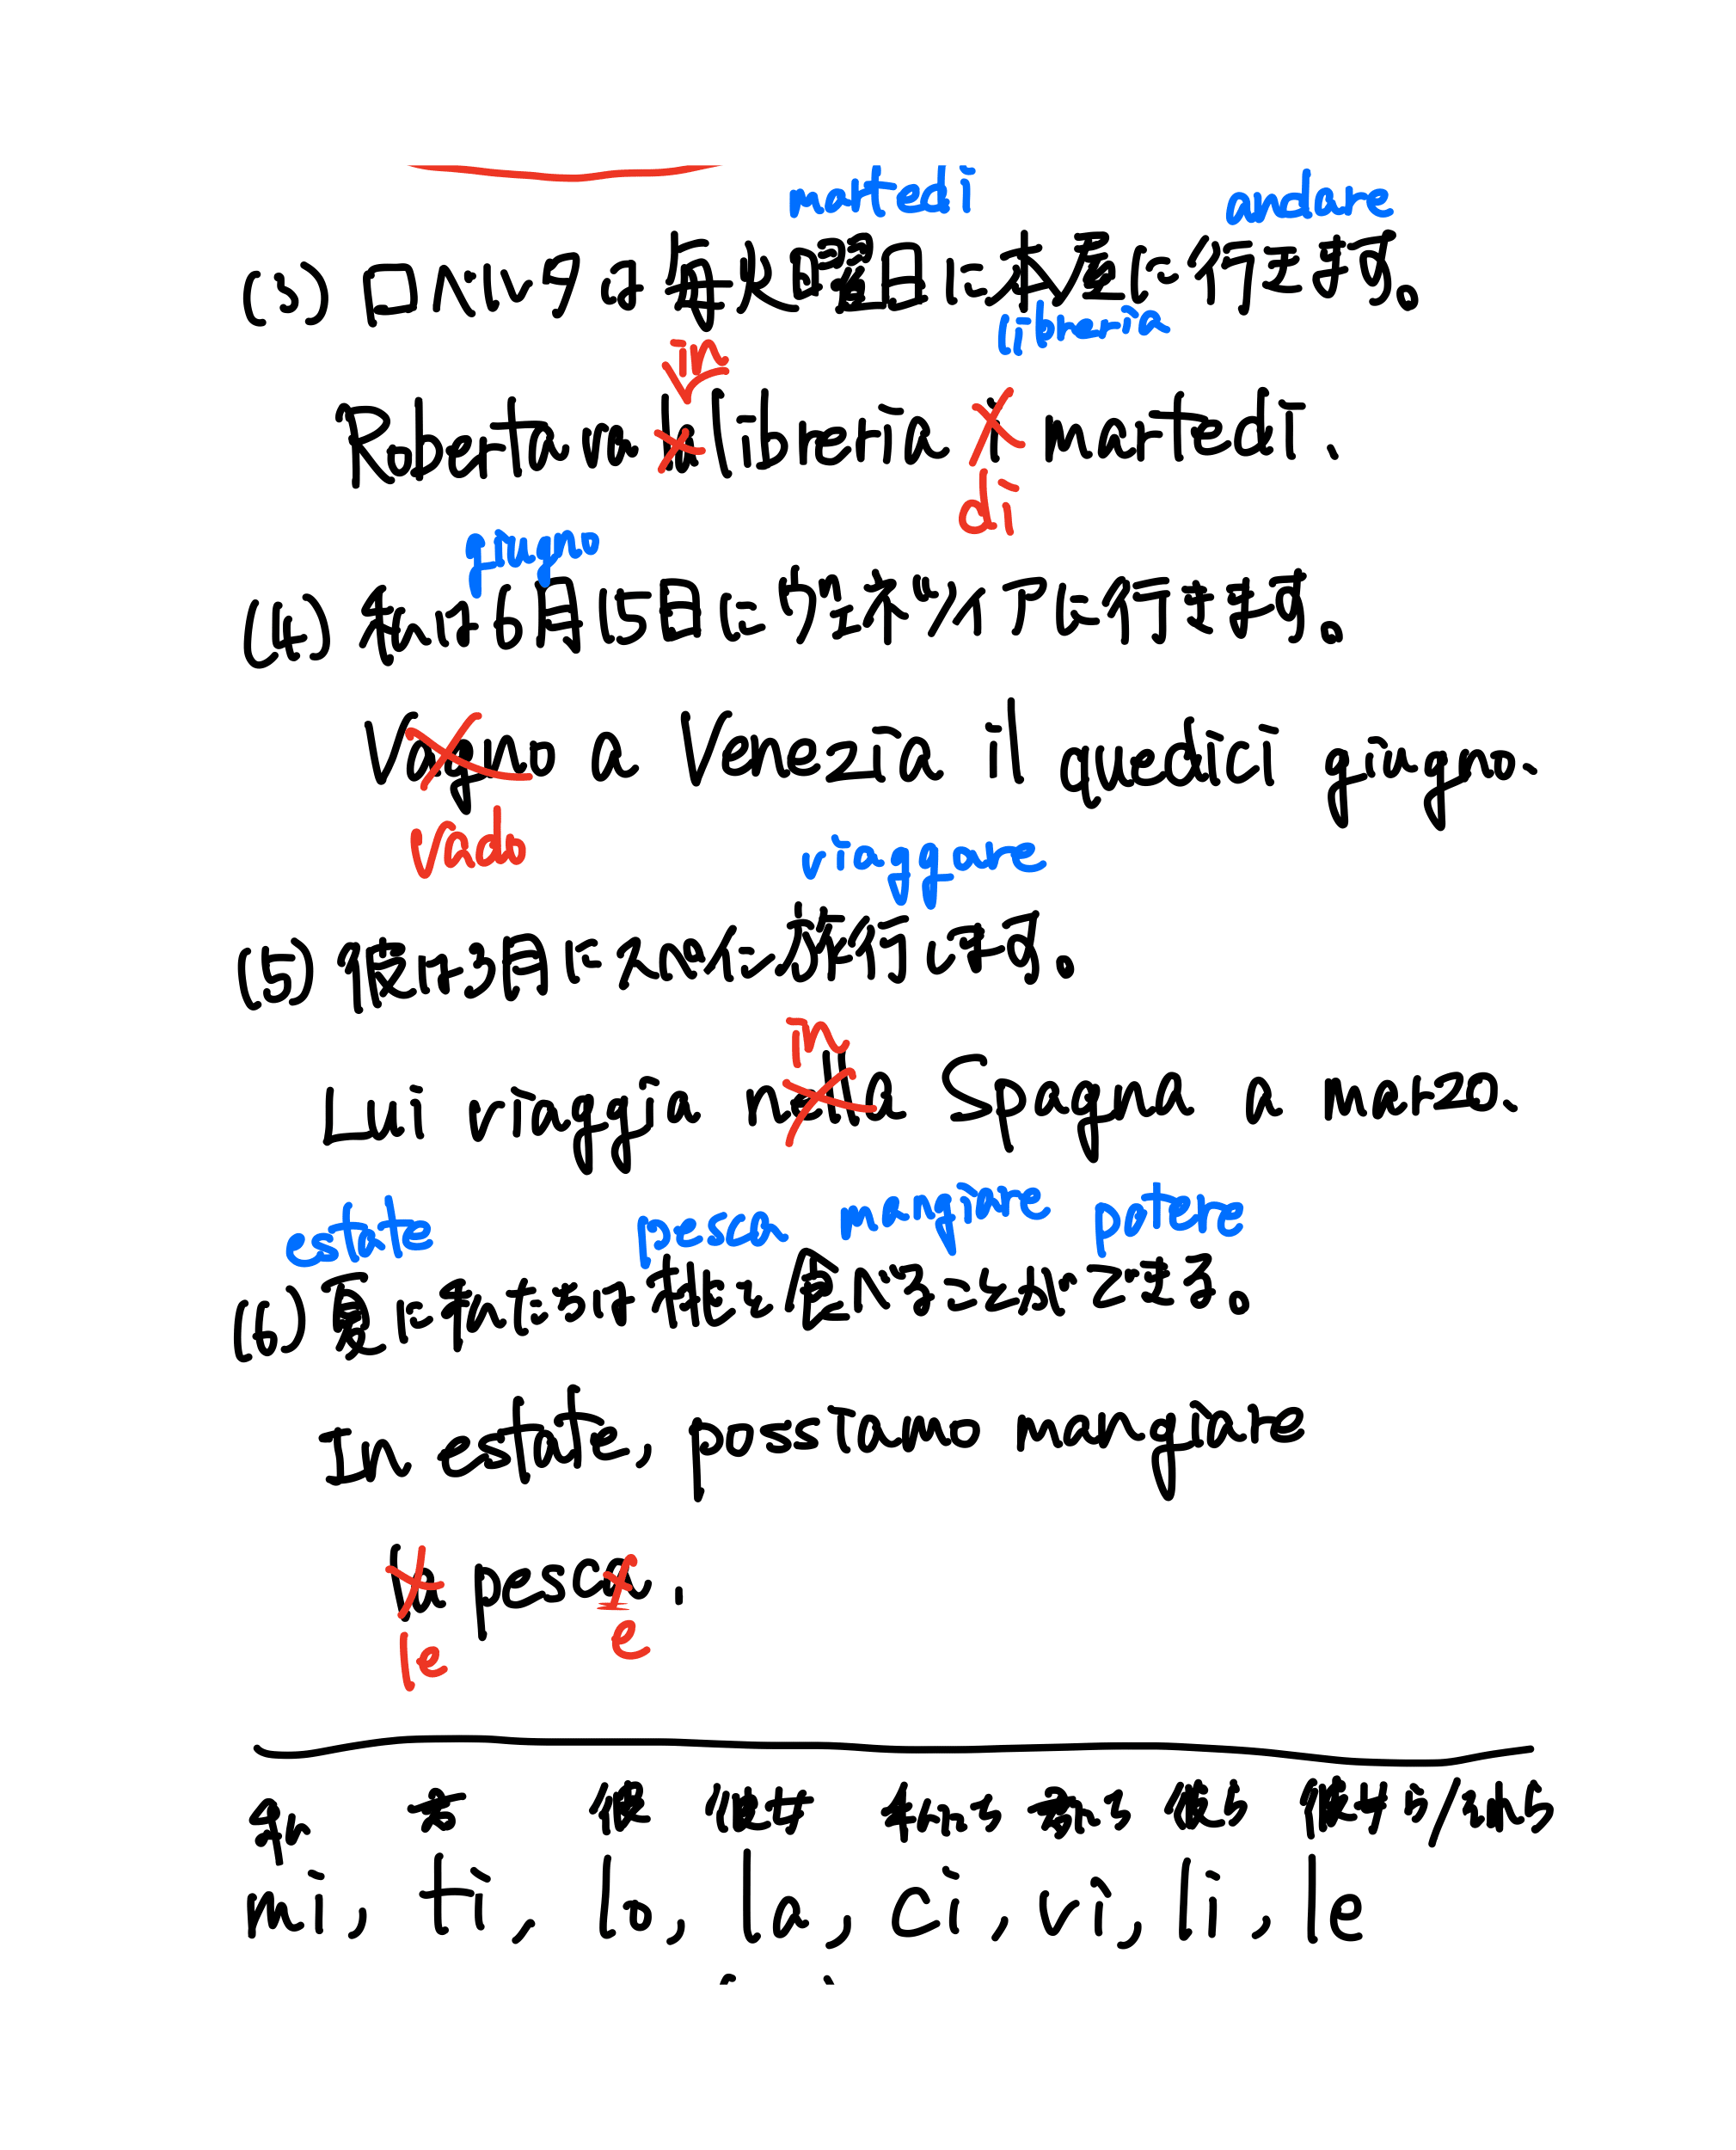 martedi andare
(3) ロベルタは毎火曜日に本屋に行きます。
libreria
in
Roberta va la libreria i martedi.
di
giugno
(4) 私は6月15日にヴェネツィアに行きます。
Vagno a Venezia il quedici giugno.
Vado
viaggiare
(5) 彼は3月にスペインへ旅行します。
in
Lui viaggia nella Spagna a marzo.
estate pesca mangiare potere
(6) 夏に私たちは桃を食べることができる。
In estate, possiamo mangiare
la pesca.
le e
私 君 彼 彼女 私たち 君たち 彼ら 彼女ら/それら
mi, ti, lo, la, ci, vi, li, le